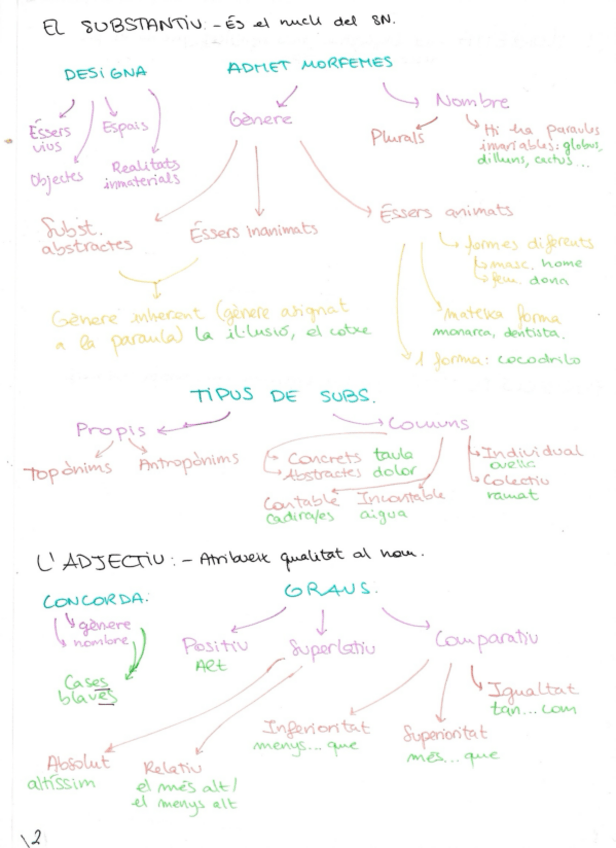 EL SUBSTANTIU: - És el nucli del SN.
DESIGNA
ADMET MORFEMES
Éssers
vius
Espais
Objectes
Realitats
inmaterials
Gènere
Nombre
Plurals
Hi ha paraules
invariables: globus,
dilluns, cactus...
Subst.
abstractes
Éssers inanimats
Éssers animats
formes diferents
masc. home
fem. dona
Gènere inherent (gènere asignat
a la paraula) la il·lusió, el cotxe
mateixa forma
monarca, dentista.
1 forma: cocodrilo
TIPUS DE SUBS.
Propis
Comuns
Topònims
Antropònims
Concrets taula
Abstractes dolor
Individual
ovella
Colectiu
ramat
Contable
cadira/es
Incontable
aigua
L'ADJECTIU: - Atribueix qualitat al nom.
CONCORDA:
gènere
nombre
Cases
blaves
GRAUS.
Positiu
Alt
Superlatiu
Comparatiu
Igualtat
tan... com
Inferioritat
menys... que
Superioritat
més... que
Absolut
altíssim
Relatiu
el més alt/
el menys alt
\2